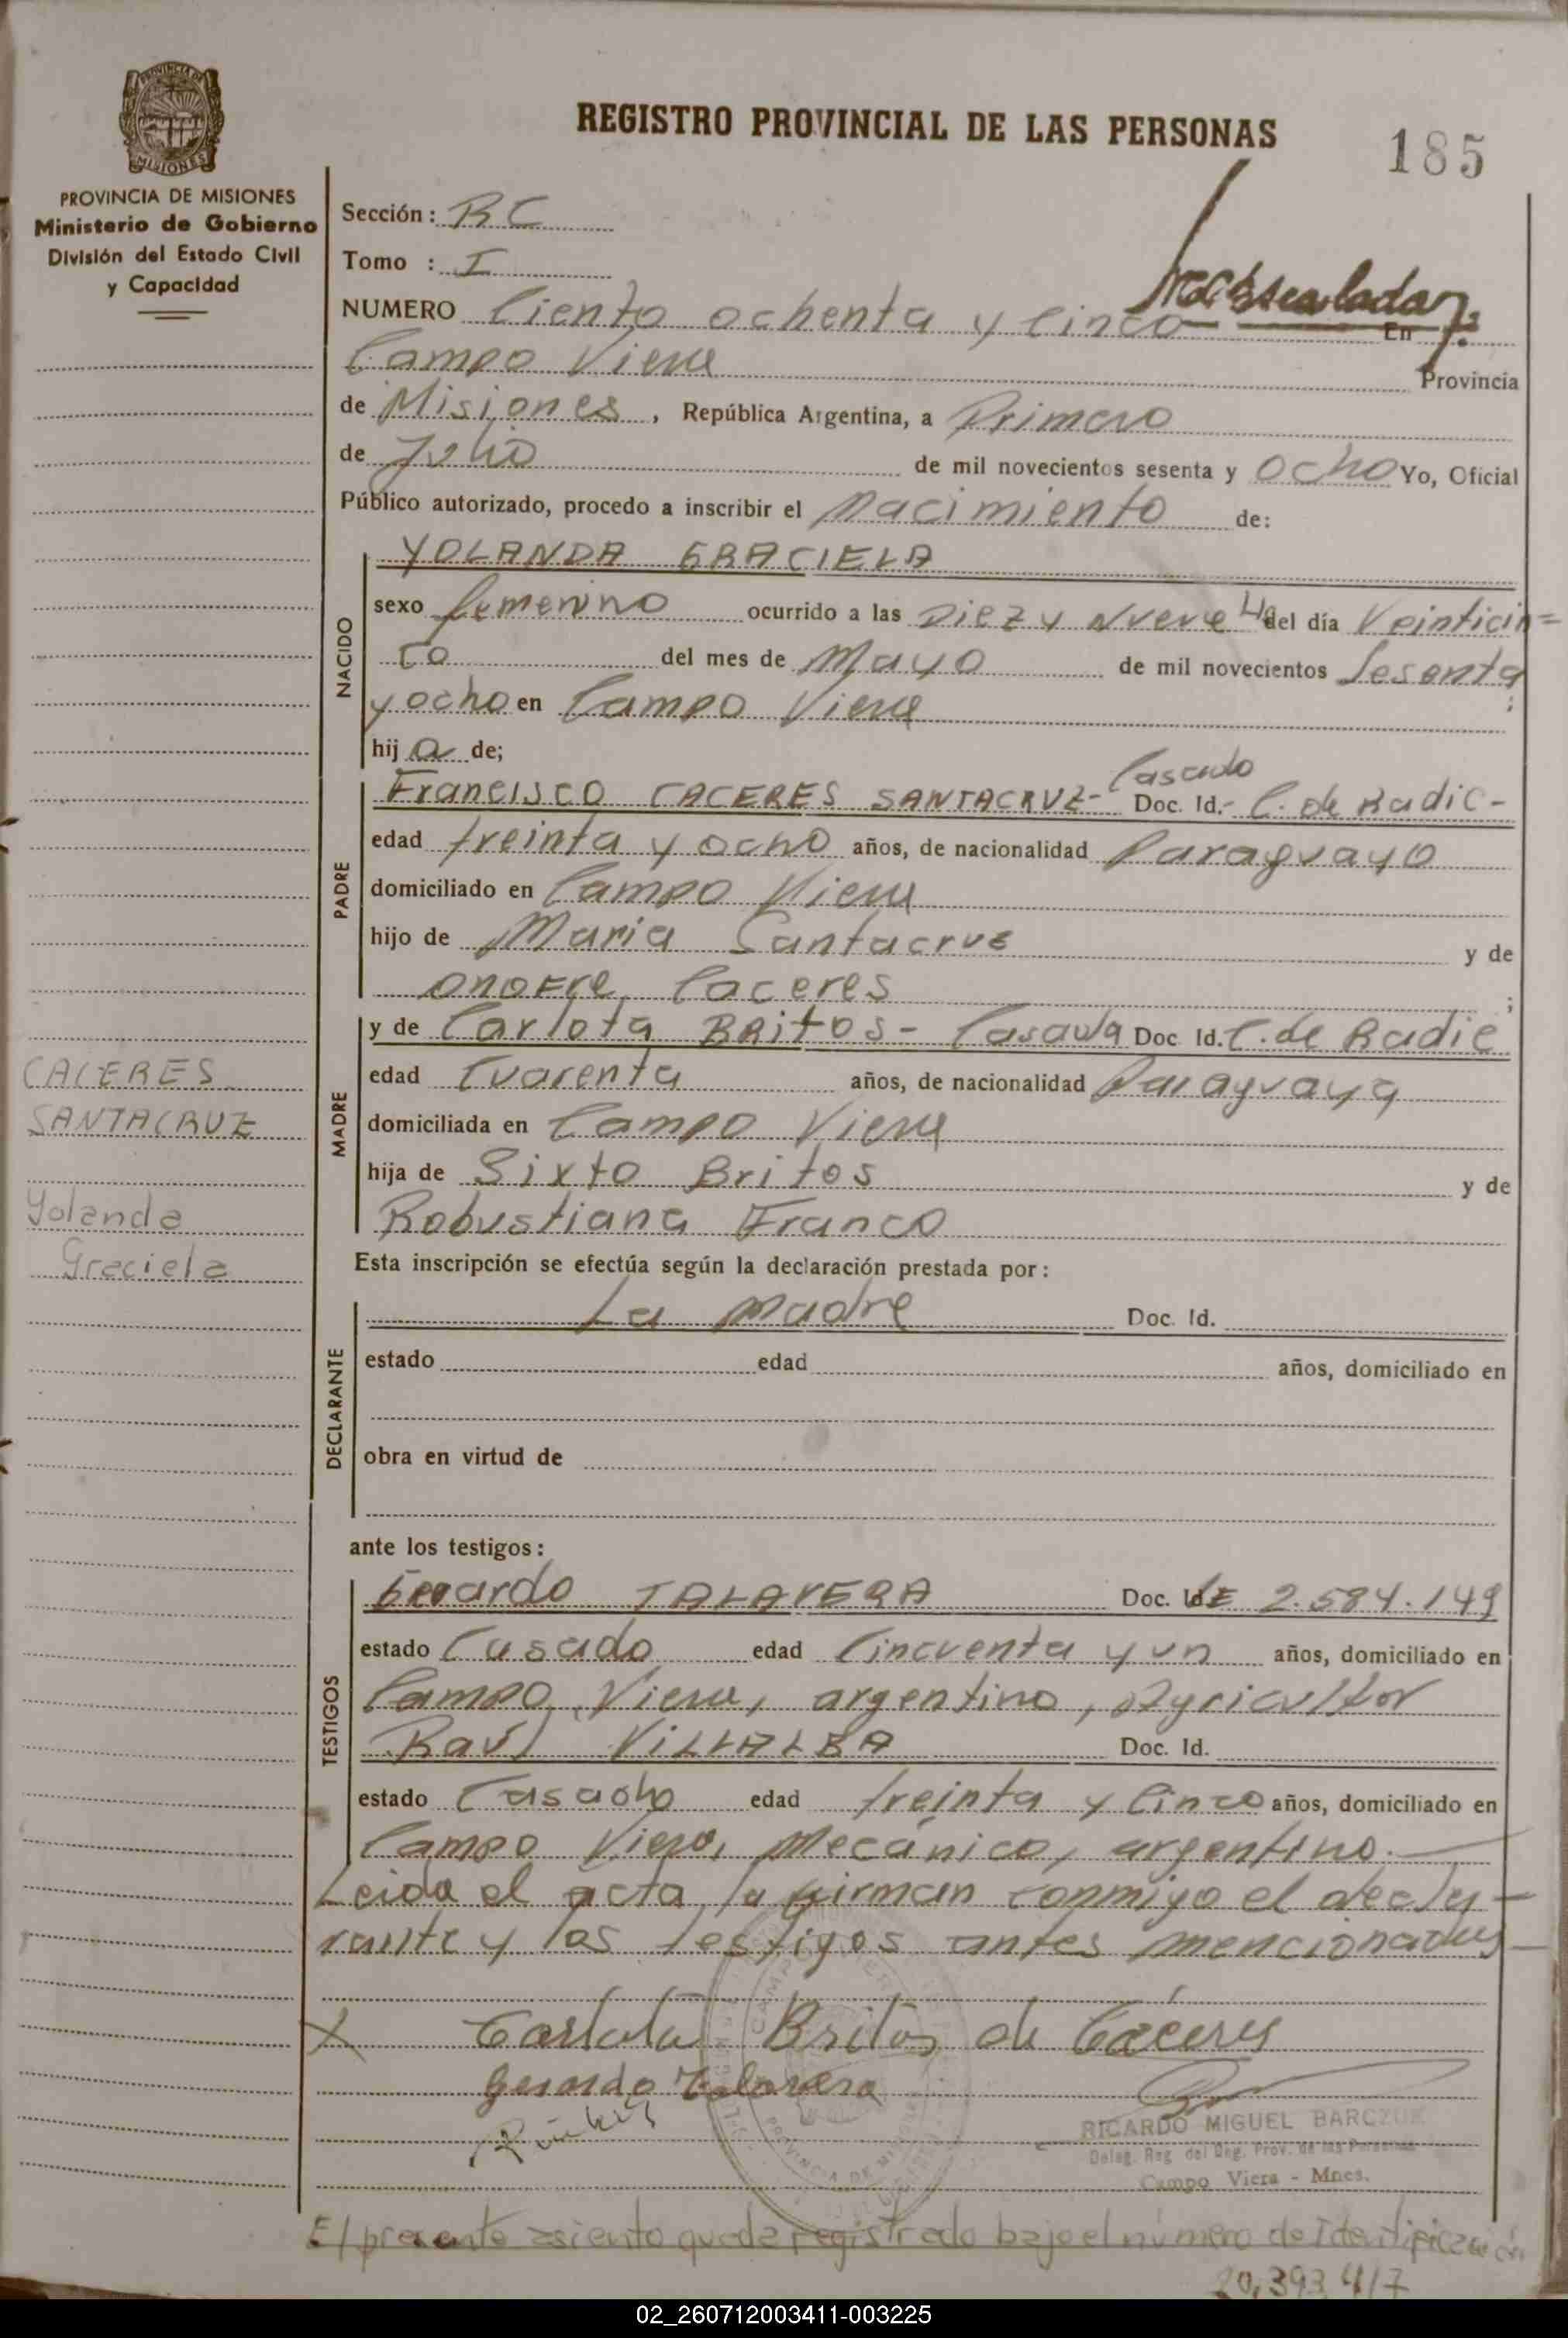 REGISTRO PROVINCIAL DE LAS PERSONAS
185
PROVINCIA DE
MISIONES
PROVINCIA DE MISIONES
Ministerio de Gobierno
División del Estado Civil
y Capacidad
Sección: RC
Tomo : I
NUMERO Ciento ochenta y Cinco En
Campo Viera Provincia
de Misiones, República Argentina, a Primero
de Julio de mil novecientos sesenta y ocho Yo, Oficial
Público autorizado, procedo a inscribir el Nacimiento de:
NACIDO
YOLANDA GRACIELA
sexo femenino ocurrido a las Diez y Nueve Hs del día Veinticin=
co del mes de Mayo de mil novecientos Sesenta
y ocho en Campo Viera ;
hija de;
PADRE
Casado
Francisco CACERES SANTACRUZ- Doc. Id.- C. de Radic-
edad treinta y ocho años, de nacionalidad Paraguayo
domiciliado en Campo Viera
hijo de Maria Santacruz y de
Onofre Caceres ;
MADRE
y de Carlota BRITOS- Casada Doc Id. C. de Radic
edad Cuarenta años, de nacionalidad Paraguaya
domiciliada en Campo Viera
hija de Sixto Britos y de
Robustiana Franco
CACERES
SANTACRUZ
Yolanda
Graciela
Esta inscripción se efectúa según la declaración prestada por:
DECLARANTE
La Madre Doc. Id.
estado edad años, domiciliado en
obra en virtud de
ante los testigos:
TESTIGOS
Gerardo TALAVERA Doc. Id LE 2.584.149
estado Casado edad Cincuenta y un años, domiciliado en
Campo Viera, argentino, Agricultor
Raúl VILLALBA Doc. Id.
estado Casado edad treinta y Cinco años, domiciliado en
Campo Viera, Mecánico, argentino.
Leida el acta, la firman conmigo el decla-
rante y los testigos antes mencionados
X Carlota Britos de Cáceres
Gerardo Talavera
RICARDO MIGUEL BARCZUK
Deleg. Reg del Reg. Prov. de las Personas
Campo Viera - Mnes.
El presente asiento queda registrado bajo el número de Identificación
20,393,417
02_260712003411-003225